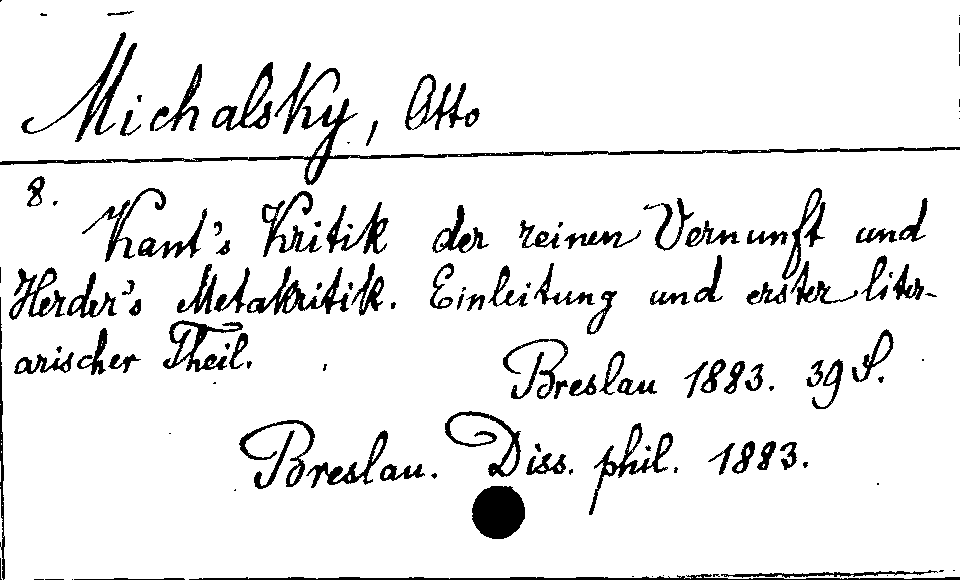 Michalsky, Otto
8.
Kant's Kritik der reinen Vernunft und
Herder's Metakritik. Einleitung und erster liter-
arischer Theil.
Breslau 1883. 39 S.
Breslau. Diss. phil. 1883.